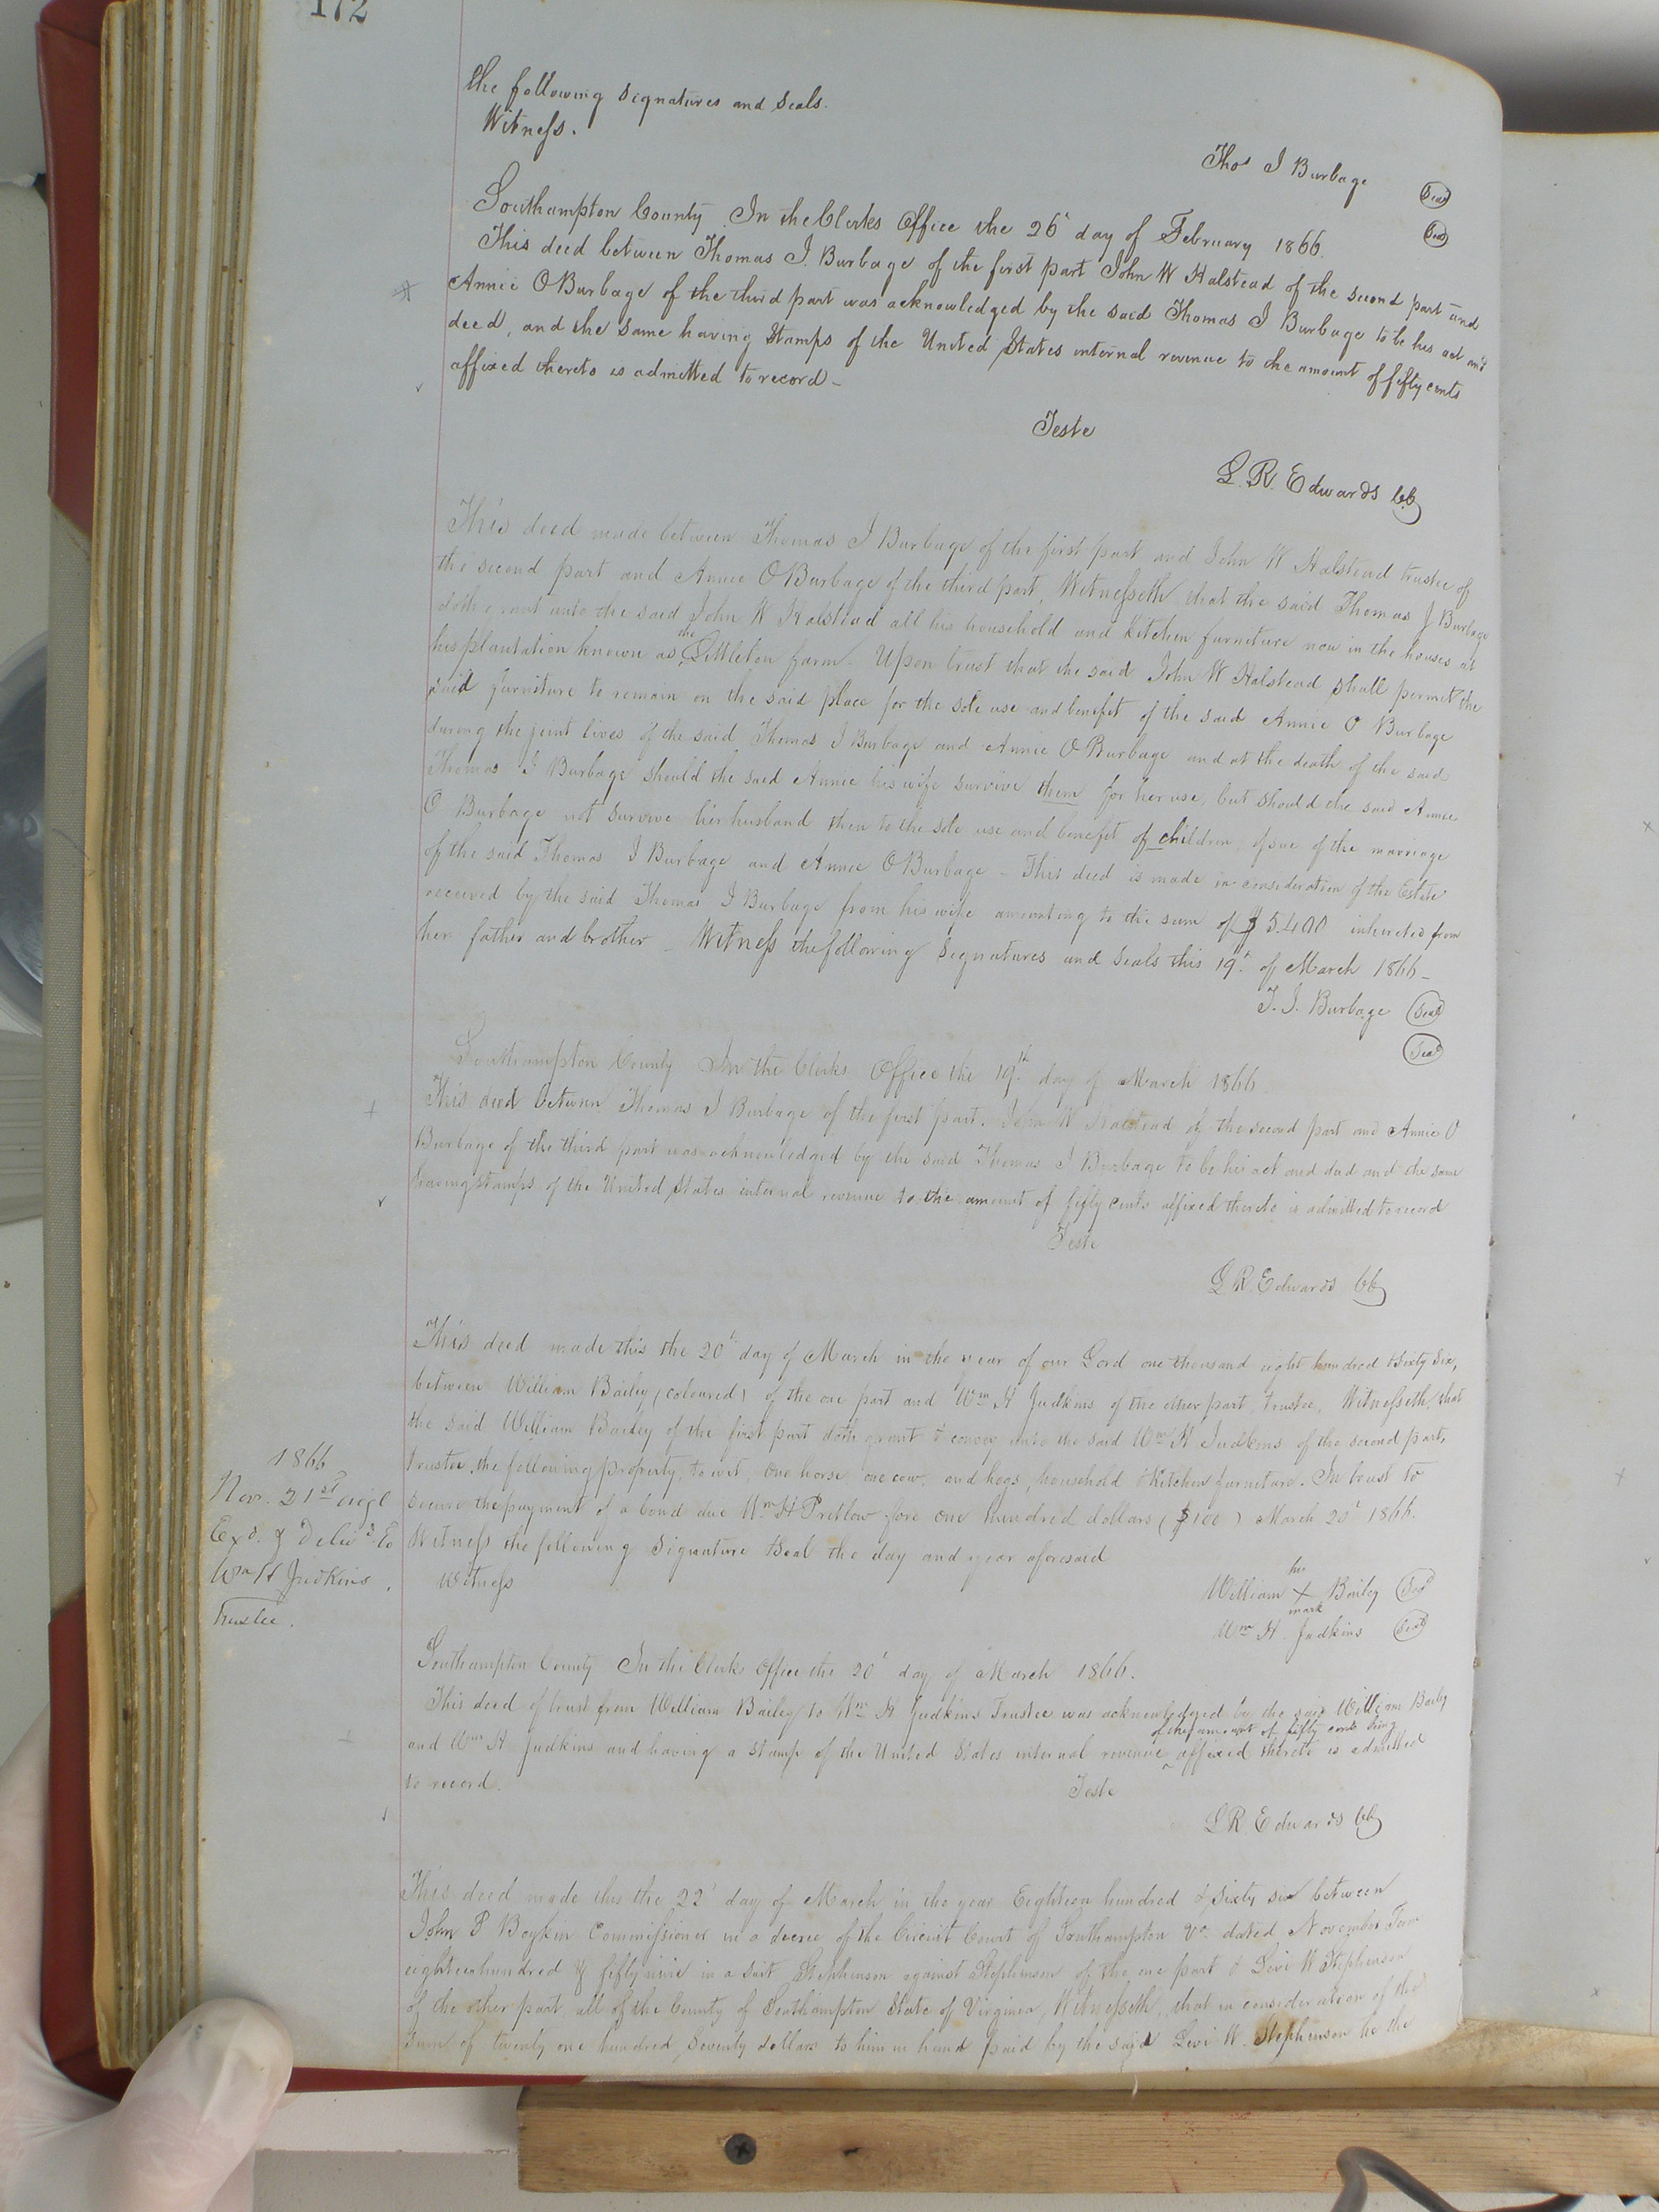 172
the following signatures and seals.
Witness.
Thos I Burbage Seal
Seal
Southampton County In the Clerks Office the 26' day of February 1866.
This deed between Thomas I. Burbage of the first part John W Halstead of the second part and
Annie O Burbage of the third part was acknowledged by the said Thomas I Burbage to be his act and
deed, and the same having Stamps of the United States internal revenue to the amount of fifty cents
affixed thereto is admitted to record -
Teste
L. R. Edwards Ck
This deed made between Thomas I Burbage of the first part and John W Halstead trustee of
the second part and Annie O Burbage of the third part, Witnesseth that the said Thomas J Burbage
doth grant unto the said John W Halstead all his household and Kitchen furniture now in the houses at
his plantation known as the Littleton farm - Upon trust that the said John W Halstead shall permit the
said furniture to remain on the said place for the sole use and benefit of the said Annie O Burbage
during the joint lives of the said Thomas I Burbage and Annie O Burbage and at the death of the said
Thomas I Burbage should the said Annie his wife survive them for her use, but should the said Annie
O Burbage not survive her husband then to the sole use and benefit of children, issue of the marriage
of the said Thomas I Burbage and Annie O Burbage - This deed is made in consideration of the Estate
received by the said Thomas I Burbage from his wife amounting to the sum of $5.400 inherited from
her father and brother - Witness the following signatures and seals this 19' of March 1866 -
T. I. Burbage Seal
Seal
Southampton County In the Clerks Office the 19th day of March 1866
This deed between Thomas I Burbage of the first part. John W Halstead of the second part and Annie O
Burbage of the third part was acknowledged by the said Thomas I Burbage to be his act and deed and the same
having stamps of the United States internal revenue to the amount of fifty cents affixed thereto is admitted to record
Teste
L R. Edwards Ck
This deed made this the 20' day of March in the year of our Lord one thousand eight hundred & Sixty Six,
between William Bailey (coloured) of the one part and Wm H Judkins of the other part, trustee, Witnesseth, that
the said William Bailey of the first part doth grant & convey unto the said Wm H Judkins of the second part,
trustee, the following property, to wit, One horse one cow, and hogs, household & Kitchen furniture. In trust to
secure the payment of a bond due Wm H Pretlow fore one hundred dollars ($100) March 20' 1866.
Witness the following Signature & Seal the day and year aforesaid
1866
Nov. 21st
Exd. & Delivd. to
Wm H Judkins
Trustee.
Witness
William his X mark Bailey Seal
Wm H Judkins Seal
Southampton County In the Clerks Office the 20' day of March 1866.
This deed of trust from William Bailey to Wm H Judkins Trustee was acknowledged by the said William Bailey
and Wm H Judkins and having a stamp of the United States internal revenue of the amount of fifty cents being affixed thereto is admitted
to record.
Teste
L R Edwards Ck
This deed made this the 22' day of March in the year Eighteen hundred & Sixty six between
John P Boykin Commissioner in a decree of the Circuit Court of Southampton Va. dated November Term
eighteen hundred & fifty nine in a Suit Stephenson against Stephenson of the one part & Levi W Stephenson
of the other part, all of the County of Southampton State of Virginia, Witnesseth, that in consideration of the
Sum of twenty one hundred Seventy dollars to him in hand paid by the said Levi W. Stephenson he the